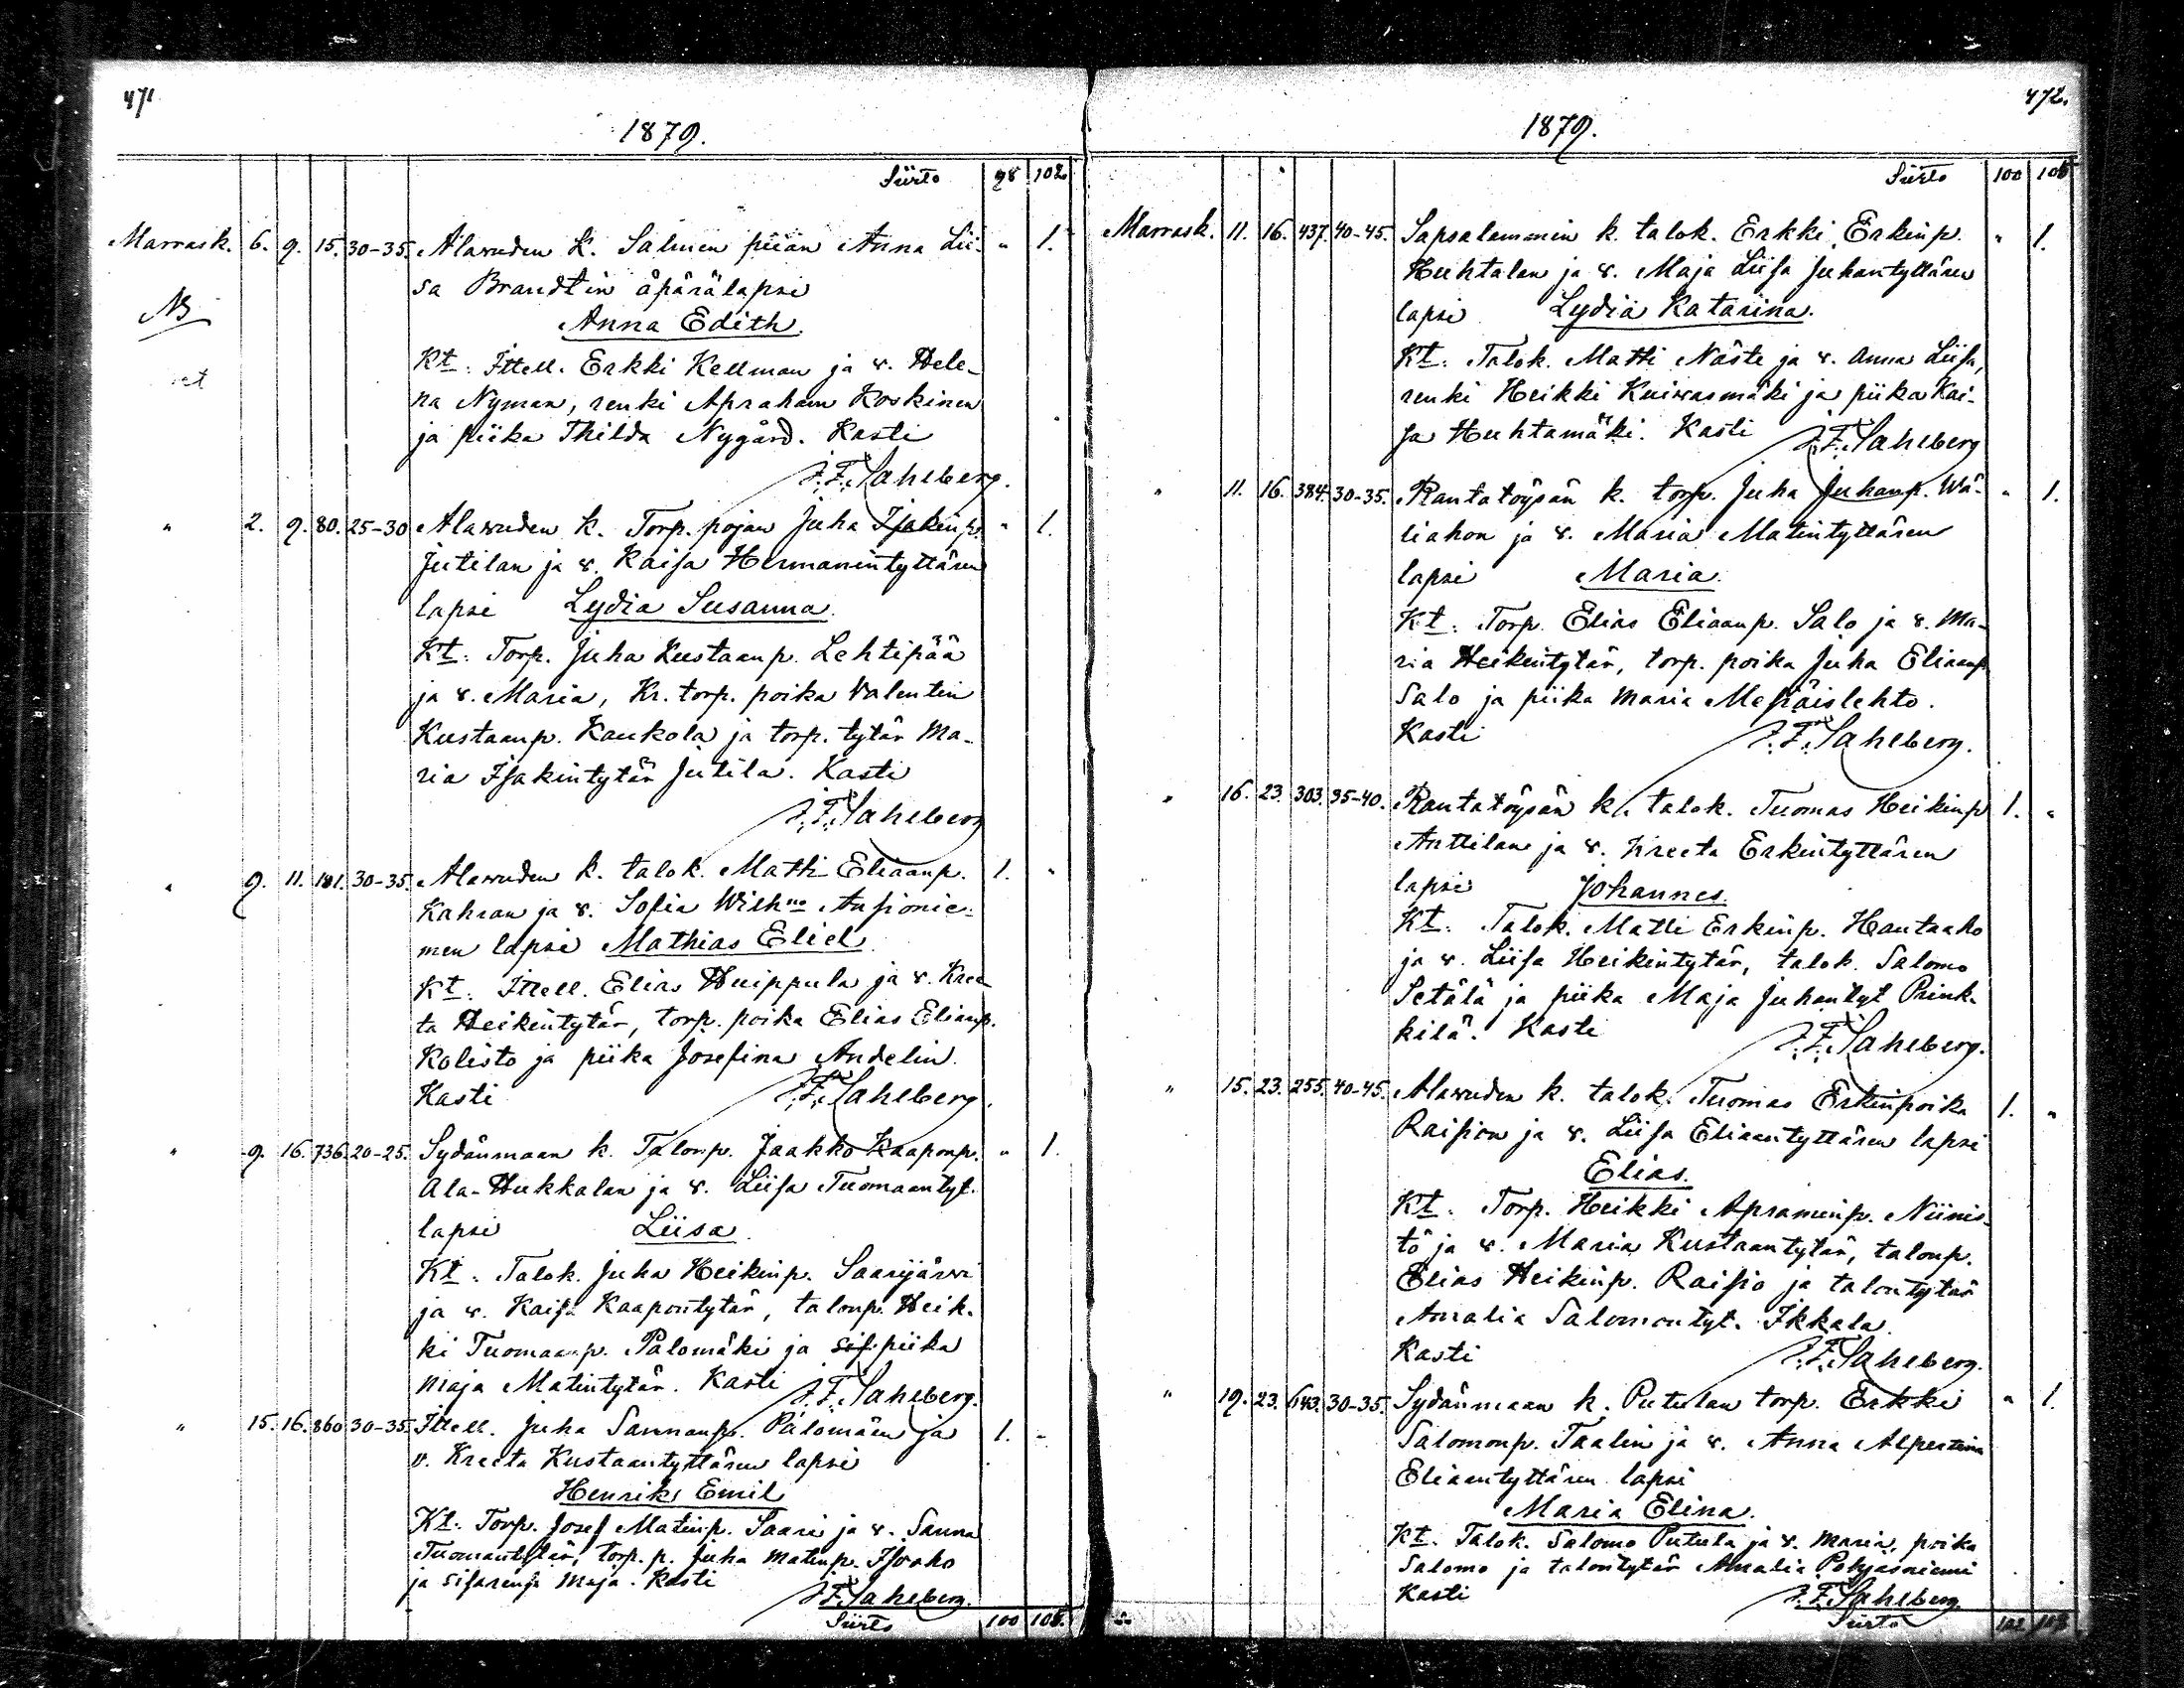 471
1879.
Siirto 98 102
Marrask. 6. 9. 15. 30-35. Alawuden k. Salmen piian Anna Lii- " 1.
sa Brandtin äpärälapsi
NB
Anna Edith.
Kt: Ittell. Erkki Kellman ja v. Hele-
na Nyman, renki Apraham Koskinen
ja piika Thilda Nygård. Kasti
J.F. Sahlberg.
" 2. 9. 80. 25-30 Alawuden k. Torp. pojan Juha Isakinp. " 1.
Jutilan ja v. Kaisa Hermanintyttären
lapsi Lydia Susanna.
Kt: Torp. Juha Kustaanp. Lehtipää
ja v. Maria, Kr. torp. poika Valentin
Kustaanp. Kaukola ja torp. tytär Ma-
ria Isakintytär Jutila. Kasti
J.F. Sahlberg
" 9. 11. 181. 30-35. Alawuden k. talok. Matti Eliaanp. 1. "
Kahran ja v. Sofia Wilhna
men lapsi Mathias Eliel.
Kt: Ittell. Elias Huippula ja v. Kree-
ta Heikintytär, torp. poika Elias Eliaanp.
Kolisto ja piika Josefina Andelin.
Kasti J.F. Sahlberg.
" 9. 16. 736. 20-25. Sydänmaan k. Talonp. Jaakko Kaaponp. " 1.
Ala-Hukkalan ja v. Liisa Tuomaantyt.
lapsi Liisa.
Kt: Talok. Juha Heikinp. Saarijärwi
ja v. Kaisa Kaapontytär, talonp. Heik-
ki Tuomaanp. Palomäki ja sis. piika
Maja Matintytär. Kasti J.F. Sahlberg.
" 15. 16. 860 30-35. Ittell. Juha Sannanp. Palomäen ja 1. -
v. Kreeta Kustaantyttären lapsi
Henrik Emil
Kt: Torp. Josef Matinp. Saari ja v. Sanna
Tuomantytär, torp. p. Juha Matinp. Isoaho
ja sisarensa Maja. Kasti
J.F. Sahlberg.
Siirto 100 105.
472.
1879.
Siirto 100 105
Marrask. 11. 16. 437. 40-45. Sapsalammin k. talok. Erkki Erkinp. " 1.
Huhtalan ja v. Maja Liisa Juhantyttären
lapsi Lydia Katarina.
Kt: Talok. Matti Näste ja v. Anna Liisa,
renki Heikki Kuiwasmäki ja piika Kai-
sa Huhtamäki. Kasti J.F. Sahlberg
" 11. 16. 384. 30-35. Rantatöysän k. torp. Juha Juhanp. Wä- " 1.
liahon ja v. Maria Matintyttären
lapsi Maria.
Kt: Torp. Elias Eliaanp. Salo ja v. Ma-
ria Heikintytär, torp. poika Juha Eliaanp.
Salo ja piika Maria Mesiäislehto.
Kasti J.F. Sahlberg.
" 16. 23. 303. 35-40. Rantatöysän k. talok. Tuomas Heikinp 1. "
Anttilan ja v. Kreeta Erkintyttären
lapsi Johannes.
Kt: Talok. Matti Erkinp. Hautaaho
ja v. Liisa Heikintytär, talok. Salomo
Setälä ja piika Maja Juhantyt Prink-
kilä. Kasti J.F. Sahlberg.
" 15. 23. 255. 40-45. Alawuden k. talok. Tuomas Erkinpoika 1. "
Raision ja v. Liisa Eliaantyttären lapsi
Elias.
Kt: Torp. Heikki Apraminp. Niinis-
tö ja v. Maria Kustaantytär, talonp.
Elias Heikinp. Raisio ja talontytär
Amalia Salomontyt. Ikkala.
Kasti J.F. Sahlberg.
" 19. 23. 643. 30-35. Sydänmaan k. Putulan torp. Erkki " 1.
Salomonp. Taalin ja v. Anna Alpertina
Eliaantyttären lapsi
Maria Elina.
Kt: Talok. Salomo Putula ja v. Maria, poika
Salomo ja talontytär Amalia Pohjasniemi
Kasti J.F. Sahlberg.
Siirto 102 108